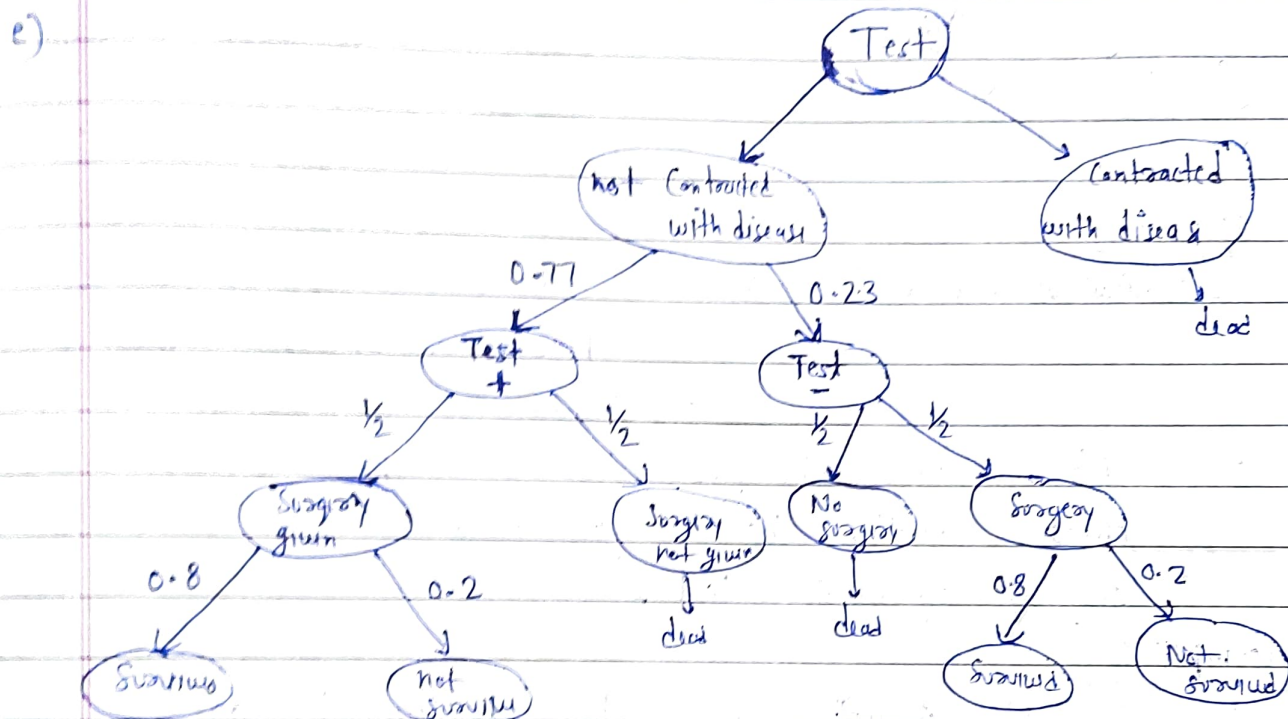 e)
Test
not Contracted
with disease
Contracted
with diseas
0.77
0.23
dead
Test
+
Test
-
1/2
1/2
1/2
1/2
Surgery
given
Surgery
not given
No
surgery
Surgery
0.8
0.2
dead
dead
0.8
0.2
Survived
not
survive
Survived
Not
survived